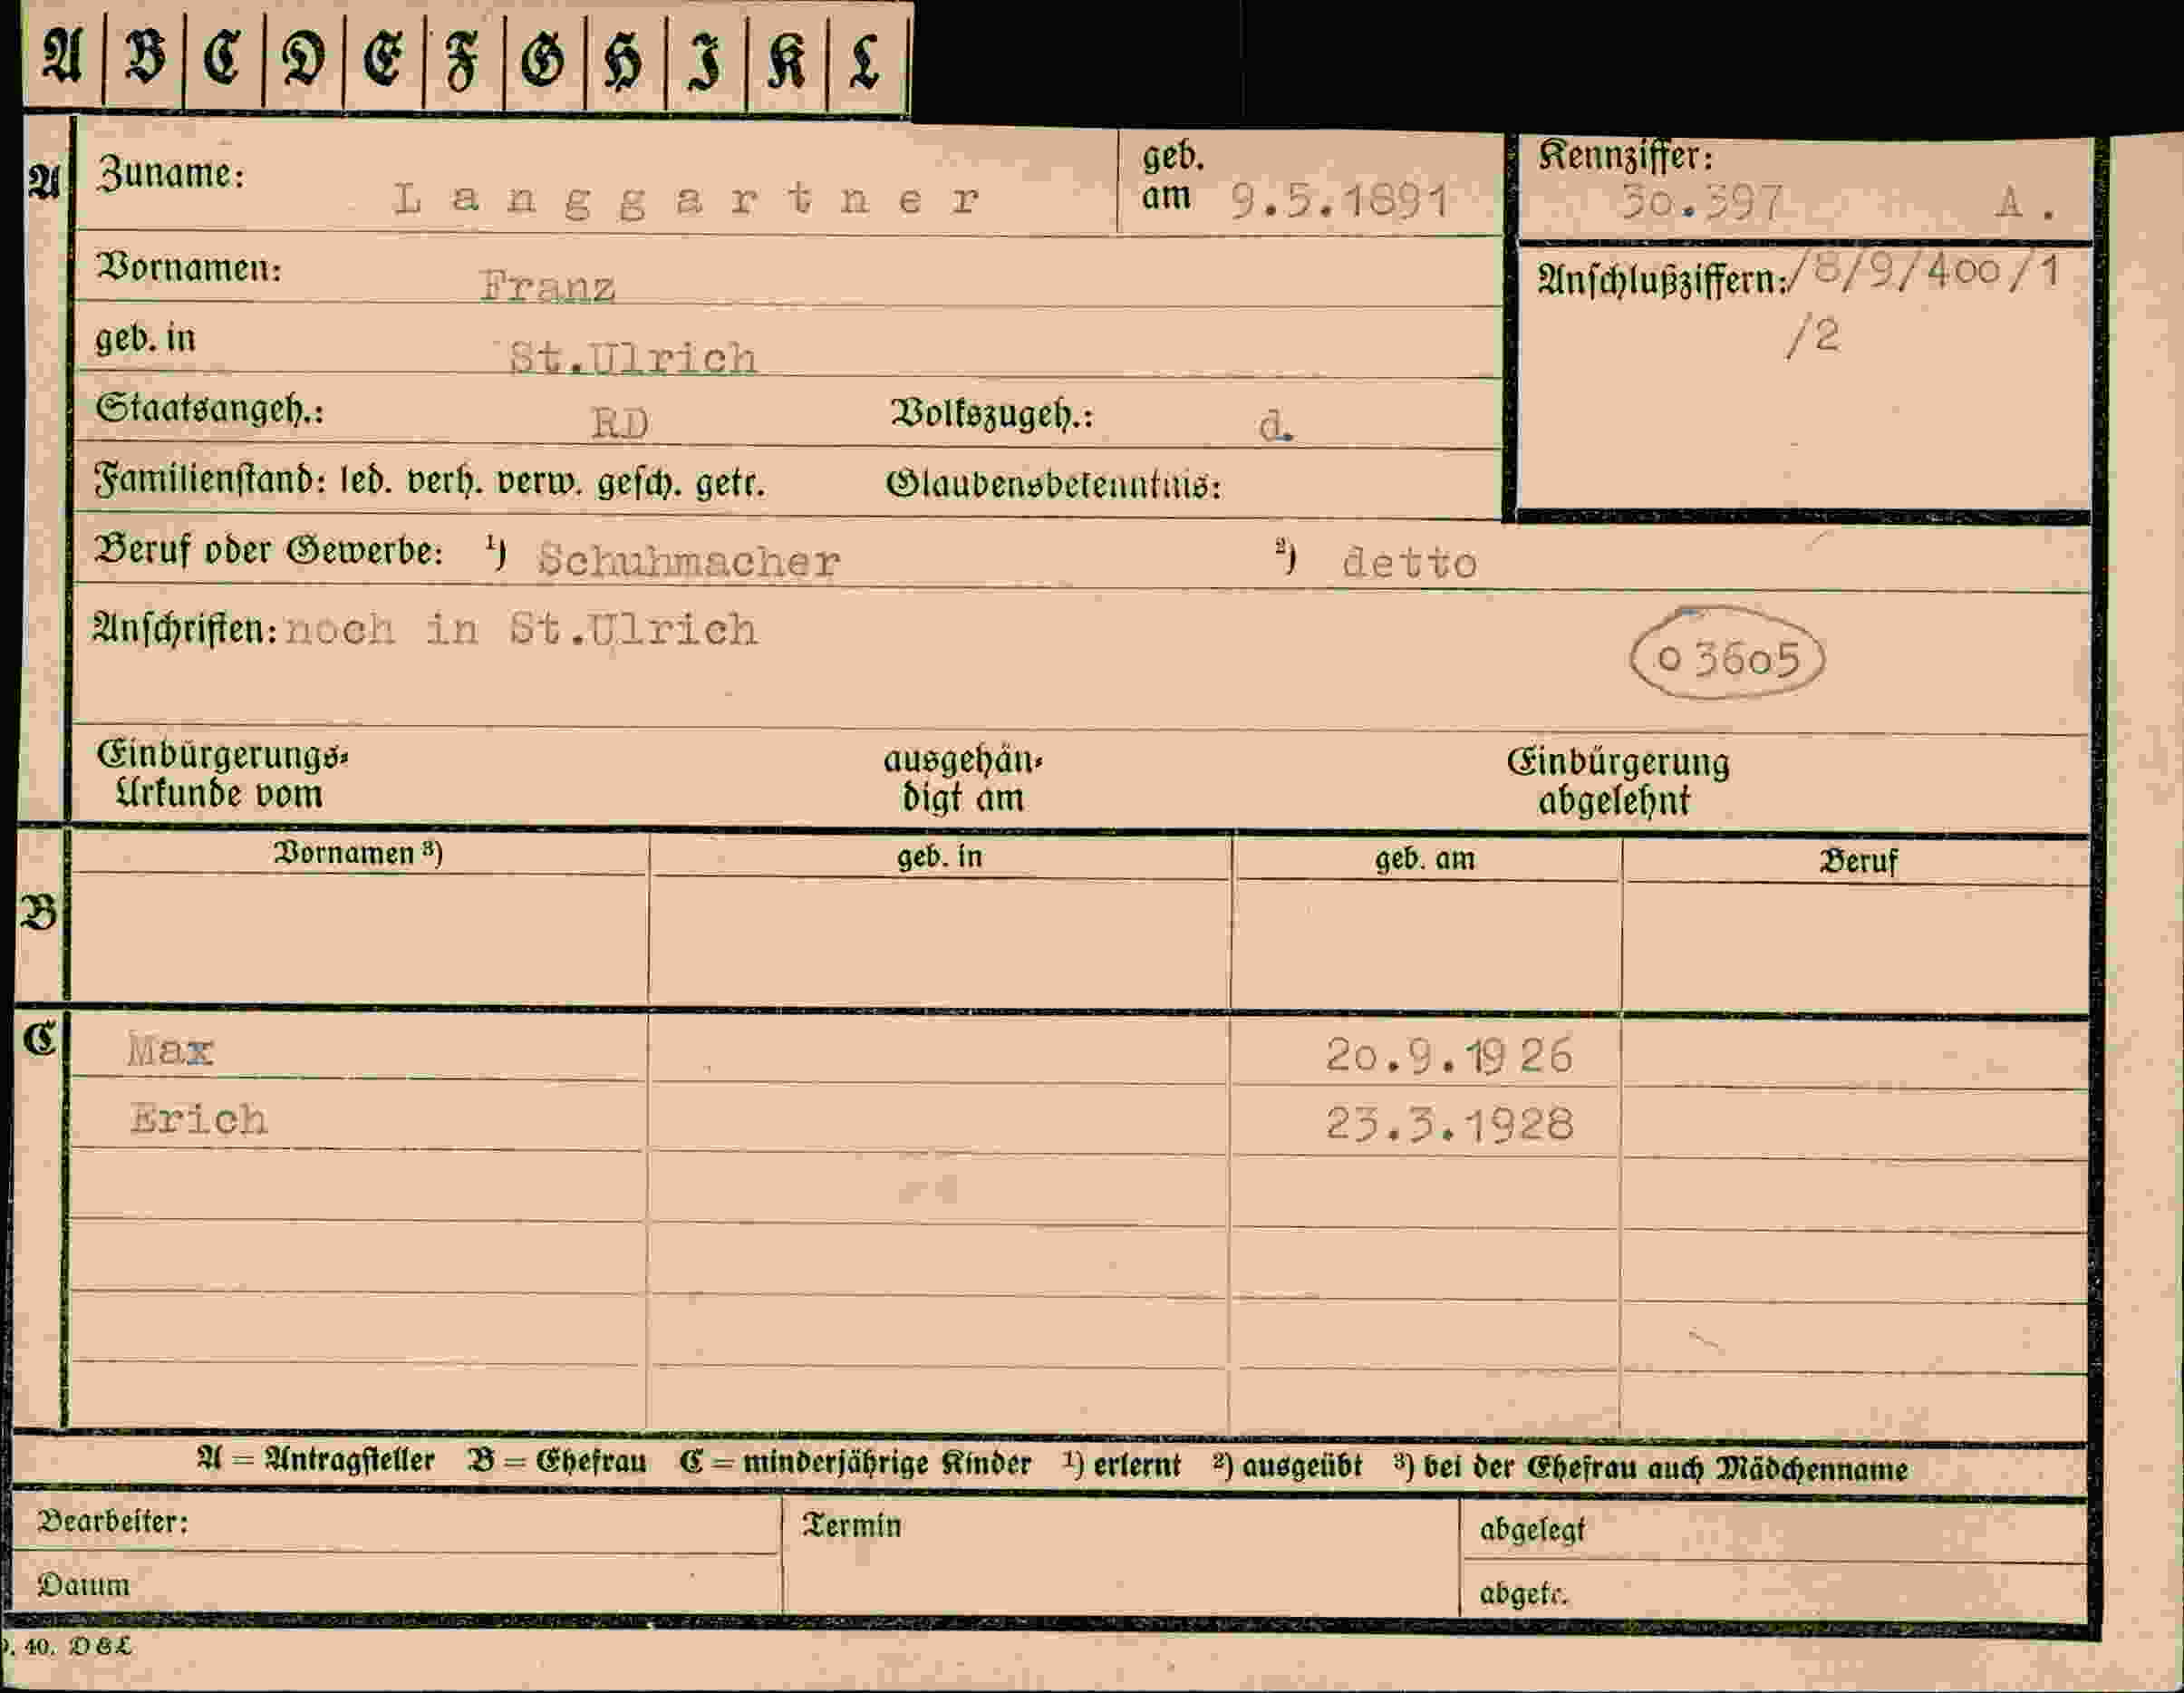 A B C D E F G H I K L
A Zuname: Langgartner geb. am 9.5.1891 Kennziffer: 30.397 A.
Vornamen: Franz Anschlußziffern: /8/9/400/1
/2
geb. in St.Ulrich
Staatsangeh.: RD Volkszugeh.: d.
Familienstand: led. verh. verw. gesch. getr. Glaubensbekenntnis:
Beruf oder Gewerbe: ¹) Schuhmacher ²) detto
Anschriften: noch in St.Ulrich
o 3605
Einbürgerungs- ausgehän- Einbürgerung
Urkunde vom digt am abgelehnt
Vornamen ³) geb. in geb. am Beruf
B
C Max 20.9.1926
Erich 23.3.1928
A = Antragsteller B = Ehefrau C = minderjährige Kinder ¹) erlernt ²) ausgeübt ³) bei der Ehefrau auch Mädchenname
Bearbeiter: Termin abgelegt
Datum abgetr.
40. D&L